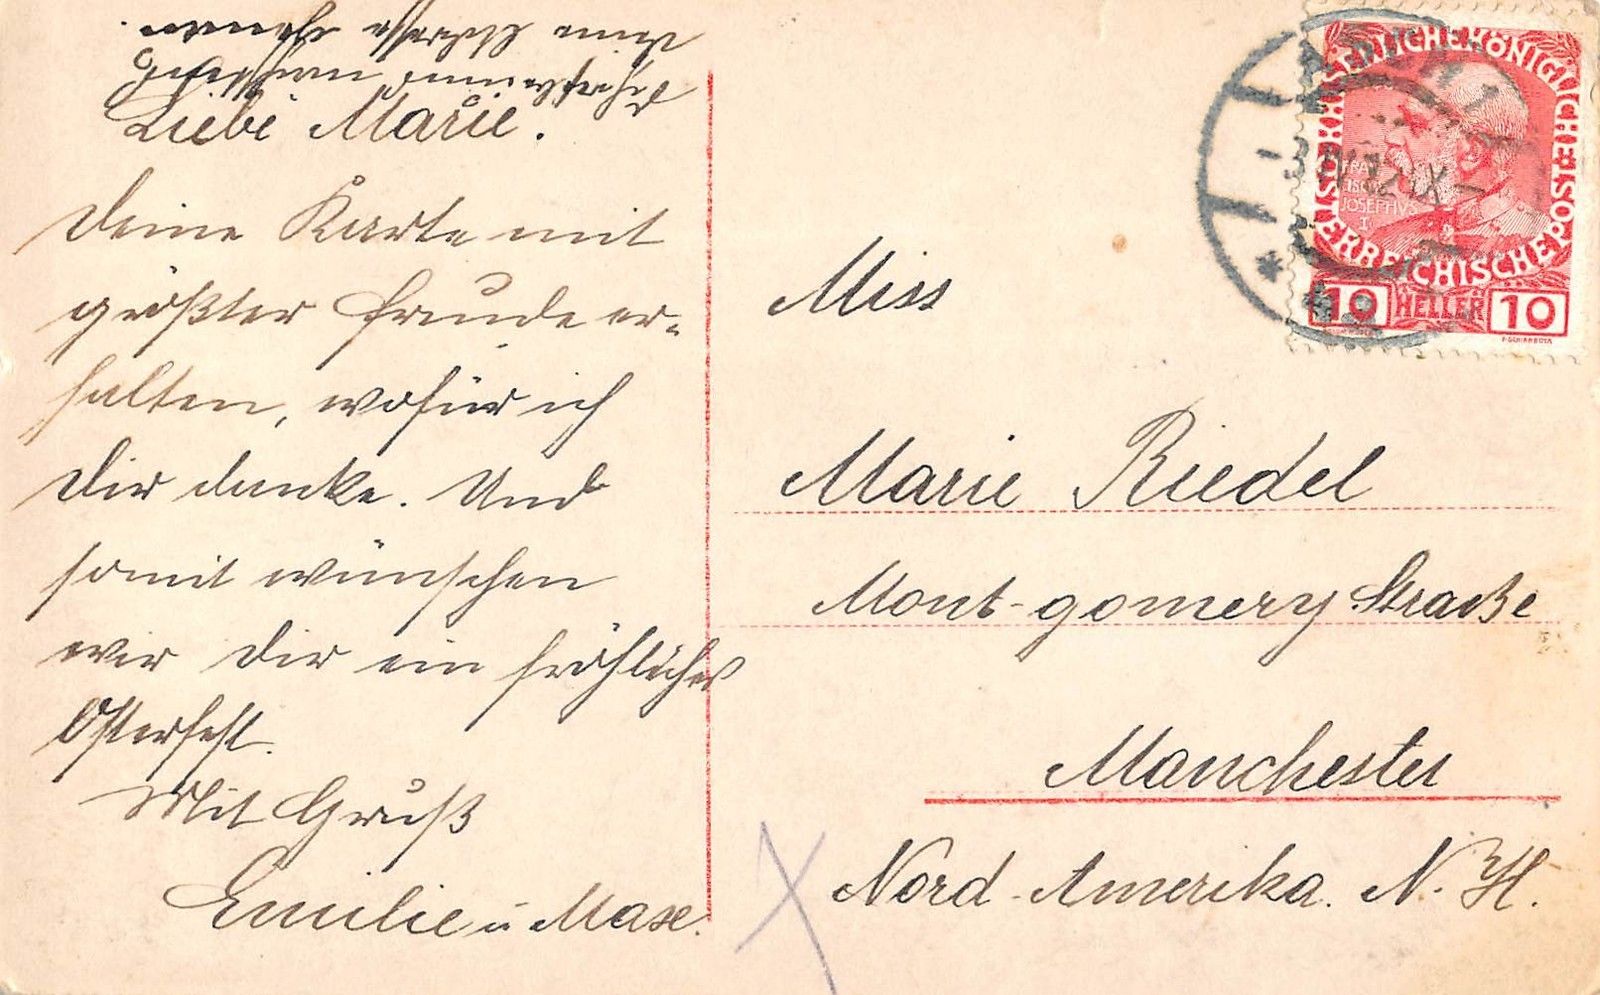 Liebe Marie.
Deine Karte mit
größter Freude er-
halten, wofür ich
Dir danke. Und
somit wünschen
wir Dir ein fröhliches
Osterfest.
Mit Gruß
Emilie u Maxe.
KAISERLICHE KÖNIGLICHE ÖSTERREICHISCHE POST
FRANCISCUS
JOSEPHVS
I
10 HELLER 10
ASCH 1
Miss
Marie Riedel
Mont-gomery Straße
Manchester
Nord-Amerika. N. H.